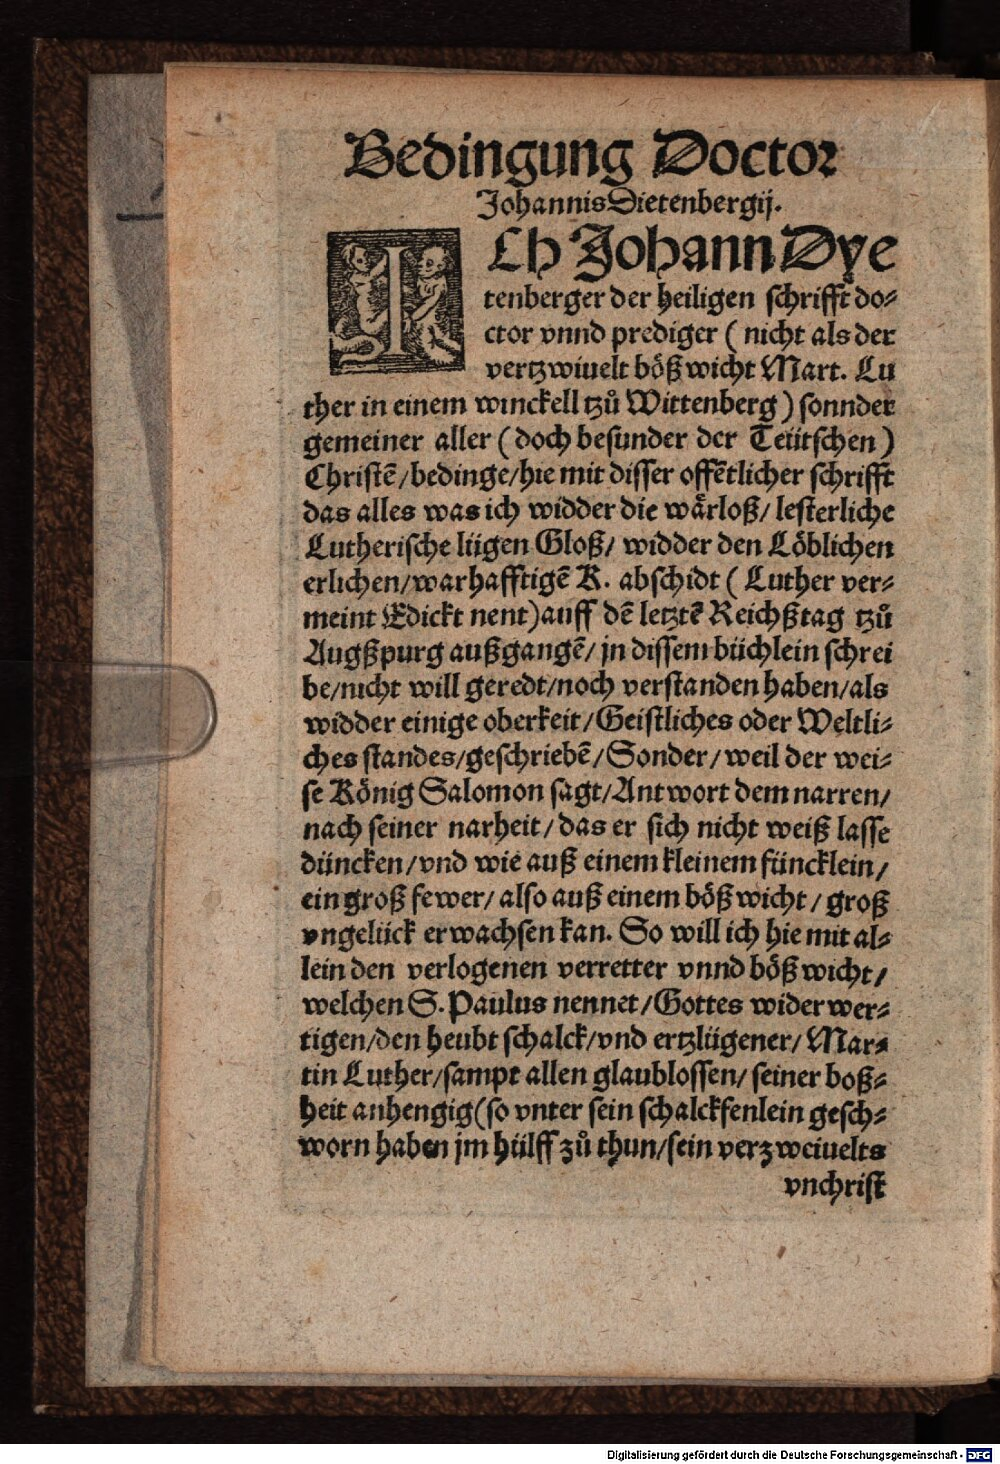 Bedingung Doctor
Johannis Dietenbergij.
ICh Johann Dye
tenberger der heiligen schrifft do⸗
ctor vnnd prediger ( nicht als der
vertzwiuelt bößwicht Mart. Lu
ther in einem winckell tzů Wittenberg ) sonnder
gemeiner aller ( doch besunder der Teütschen )
Christē /bedinge/hie mit disser offētlicher schrifft
das alles was ich widder die wårloß/ lesterliche
Lutherische lügen Gloß/ widder den Löblichen
erlichen/warhafftigē K. abschidt ( Luther ver⸗
meint Edickt nent)auff dē letztē Reichßtag tzů
Augßpurg außgangē/ jn dissem büchlein schrei
be/nicht will geredt/noch verstanden haben/als
widder einige oberkeit/Geistliches oder Weltli⸗
ches standes/geschriebē/Sonder/ weil der wei⸗
se König Salomon sagt/Antwort dem narren/
nach seiner narheit/das er sich nicht weiß lasse
düncken/vnd wie auß einem kleinem füncklein/
ein groß fewer/ also auß einem bößwicht/ groß
vngelück erwachsen kan. So will ich hie mit al⸗
lein den verlogenen verretter vnnd bößwicht/
welchen S. Paulus nennet/Gottes widerwer⸗
tigen/den heubt schalck/vnd ertzlügener/ Mar⸗
tin Luther/sampt allen glaublossen/ seiner boß⸗
heit anhengig(so vnter sein schalckfenlein gesch⸗
worn haben jm hülff zů thun/sein verzweiuelts
vnchrist
Digitalisierung gefördert durch die Deutsche Forschungsgemeinschaft - DFG